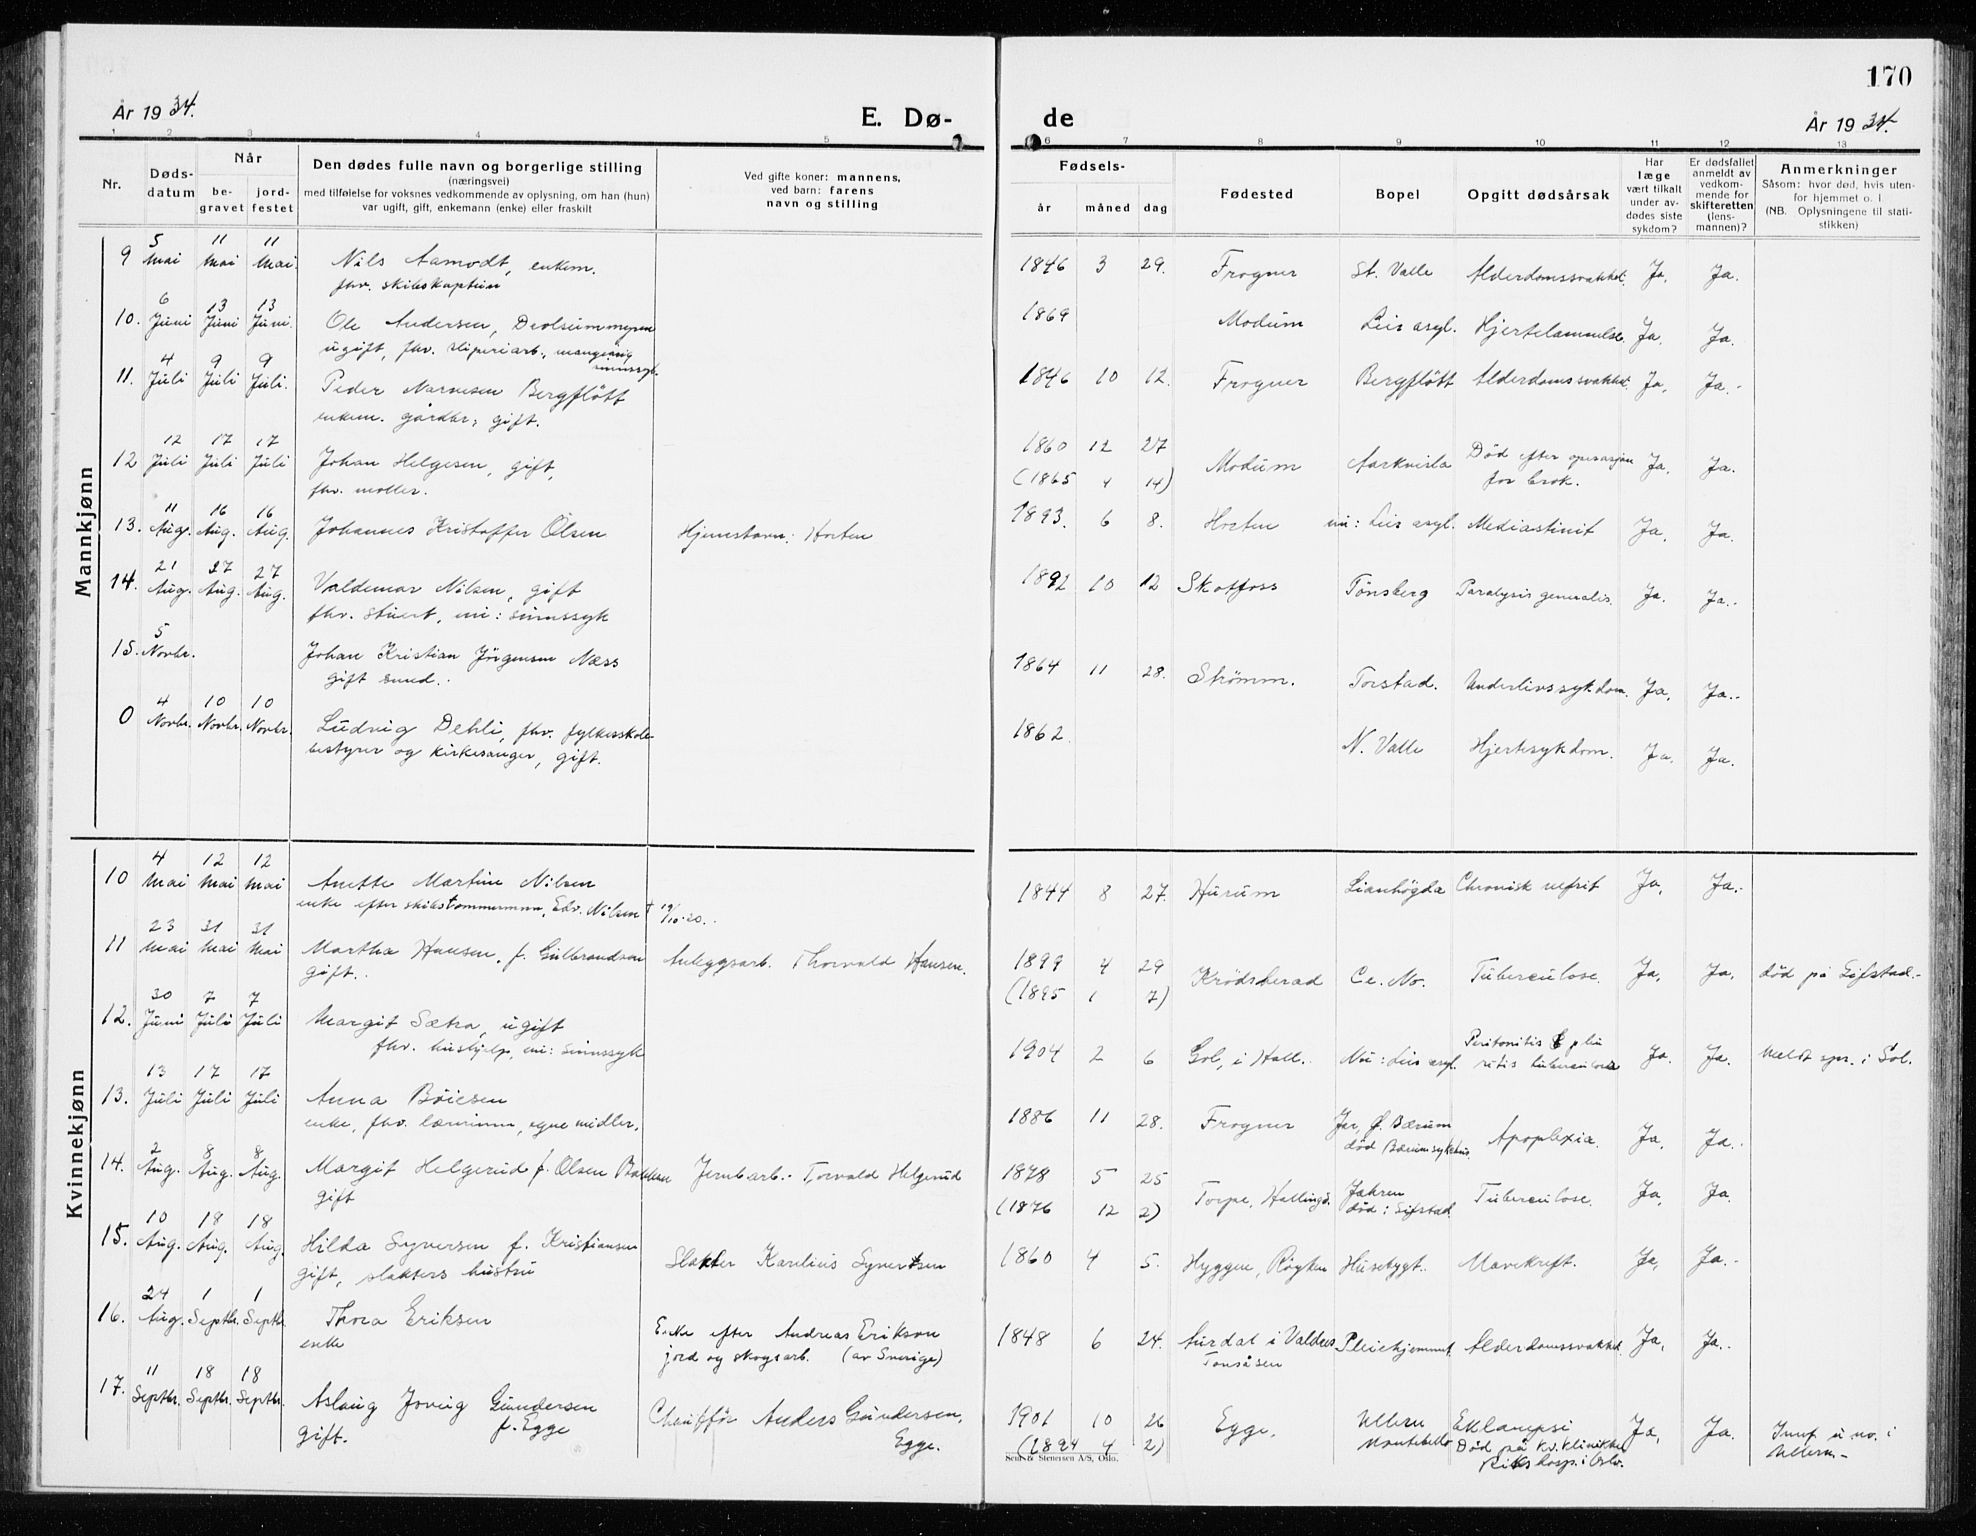 170
År 1934.
E. Dø-
de
År 1934.
1 2 3 4 5 6 7 8 9 10 11 12 13
Nr.
Døds-
datum
Når
be-
gravet
jord-
festet
Den dødes fulle navn og borgerlige stilling
(næringsvei)
med tilføielse for voksnes vedkommende av oplysning, om han (hun)
var ugift, gift, enkemann (enke) eller fraskilt
Ved gifte koner: mannens,
ved barn: farens
navn og stilling
Fødsels-
år måned dag
Fødested
Bopel
Opgitt dødsårsak
Har
læge
vært tilkalt
under av-
dødes siste
sykdom?
Er dødsfallet
anmeldt av
vedkom-
mende for
skifteretten
(lens-
mannen)?
Anmerkninger
Såsom: hvor død, hvis uten-
for hjemmet o. l.
(NB. Oplysningene til stati-
stikken)
Mannkjønn
9 5 Mai 11 Mai 11 Mai. Nils Aamodt, enkem. 1846 3 29. Frogner St. Valle Alderdomssvakhet. Ja, Ja.
fhv. skibskaptein
10. 6 Juni 13 Juni 13 Juni. Ole Andersen, 1869 Modum Lier asyl. Hjertelammelse. Ja, Ja.
ugift, fhv. sliperiarb., mangeårig
sinnssyk.
11. 4 Juli 9 Juli 9 Juli. Peder Narvesen Bergflött 1846 10 12. Frogner Bergflött Alderdomssvakhet. Ja, Ja.-
enkem. gårdbr., gift.
12 12 Juli 17 Juli 17 Juli Johan Helgesen, gift, 1860 12 27 Modum Død efter operasjon Ja, Ja.
fhv. møller. (1865 4 14) for brok.
13. 11 Aug. 16 Aug. 16 Aug. Johannes Kristoffer Olsen Hjemstavn: Horten 1893. 6 8. Horten nu: Lier asyl. Mediastinit Ja, Ja.
14. 21 Aug. 27 Aug. 27 Aug. Valdemar Nilsen, gift 1892 10 12 Skotfoss Tönsberg Paralysis generalis. Ja. Ja..
fhv. stuert, nu: sinnssyk
15. 5 Novbr. Johan Kristian Jörgensen Næss 1864 11 28. Strömm. Torstad. Underlivssykdom. Ja, Ja..
gift
0 4 Novbr. 10 Novbr. 10 Novbr. Ludvig Dehli, fhv. fylkesskole- 1862. N. Valle Hjertesykdom. Ja. Ja.
bestyrer og kirkesanger, gift.
Kvinnekjønn
10 4 Mai 12 Mai 12 Mai Anette Martine Nilsen 1844 8 27. Hurum Lianhögda Chronisk nefrit Ja, Ja.-
enke efter skibstømmermann, Edv. Nilsen † 19/10-20..
11 23 Mai 31 Mai 31 Mai Martha Hansen, f. Gulbrandsen Anleggsarb. Thorvald Hansen. 1899 4 29 Krödsherad Tuberculose. Ja, Ja, död på Sifstad.-
gift.. (1895 1 7)
12. 30 Juni 7 Juli 7 Juli Margit Sætra, ugift 1904 2 6 Gol, i Hall.. Nu: Lier asyl. Peritonitis & pleu Ja. Ja. Meldt spr. i Gol.
fhv. hushjelp, nu: sinnssyk ritis tuberculosa
13. 13 Juli 17 Juli 17 Juli Anna Böiesen 1886 11 28. Frogner Jar, Ø. Bærum Apoplexia. Ja, Ja.
enke, fhv. lærerinne, egne midler. död Bærum sykehus.
14. 2 Aug. 8 Aug. 8 Aug. Margit Helgerud f. Olsen Bakken Jernbarb.- Torvald Helgerud 1878 5 25 Torpe, Hallingd. Jahren Tuberculose. Ja, Ja.
gift (1876 12 2) död: Sifstad.
15. 10 Aug. 18 Aug. 18 Aug. Hilda Syversen f. Kristiansen Slakter Karelius Syvertsen 1860 4 5. Hyggen, Röyken Husebygt.. Mavekreft. Ja, Ja.-
gift, slakters hustru
16. 24 Aug. 1 Septbr. 1 Septbr. Thora Eriksen Enke efter Andreas Erikson 1848 6 24. Aurdal i Valdres Pleiehjemmet. Alderdomssvakhet. Ja, Ja..
enke jord og skogsarb. (av Sverige) Tonsåsen
17. 11 Septbr. 18 Septbr. 18 Septbr. Aslaug Joveig Gundersen Chaufför Anders Gundersen, 1901 10 26 Egge. Ullern Eklampsi Ja, Ja. Innf. u. no. i
gift. f. Egge Egge. (1894 4 2) Montebello Död på Kv.klinikken Ullern.-
Rikshosp. i Oslo.
Sem & Stenersen A/S, Oslo.